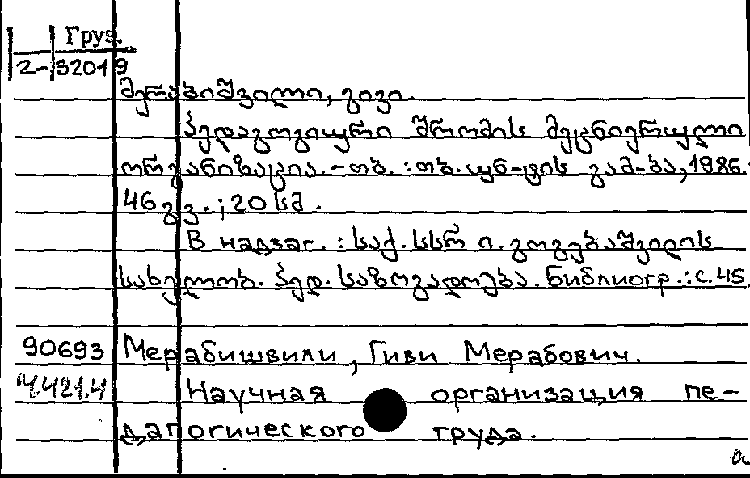 Груз.
2-32019
მერაბიშვილი, გივი.
პედაგოგიური შრომის მეცნიერული
ორგანიზაცია. - თბ. : თბ. უნ-ტის გამ-ბა, 1986.
46 გვ. ; 20 სმ.
В надзаг. : საქ. სსრ ი. გოგებაშვილის
სახელობ. პედ. საზოგადოება. Библиогр. : с. 45.
90693 Мерабишвили, Гиви Мерабович.
Ч421.4 Научная организация пе-
дагогического труда.